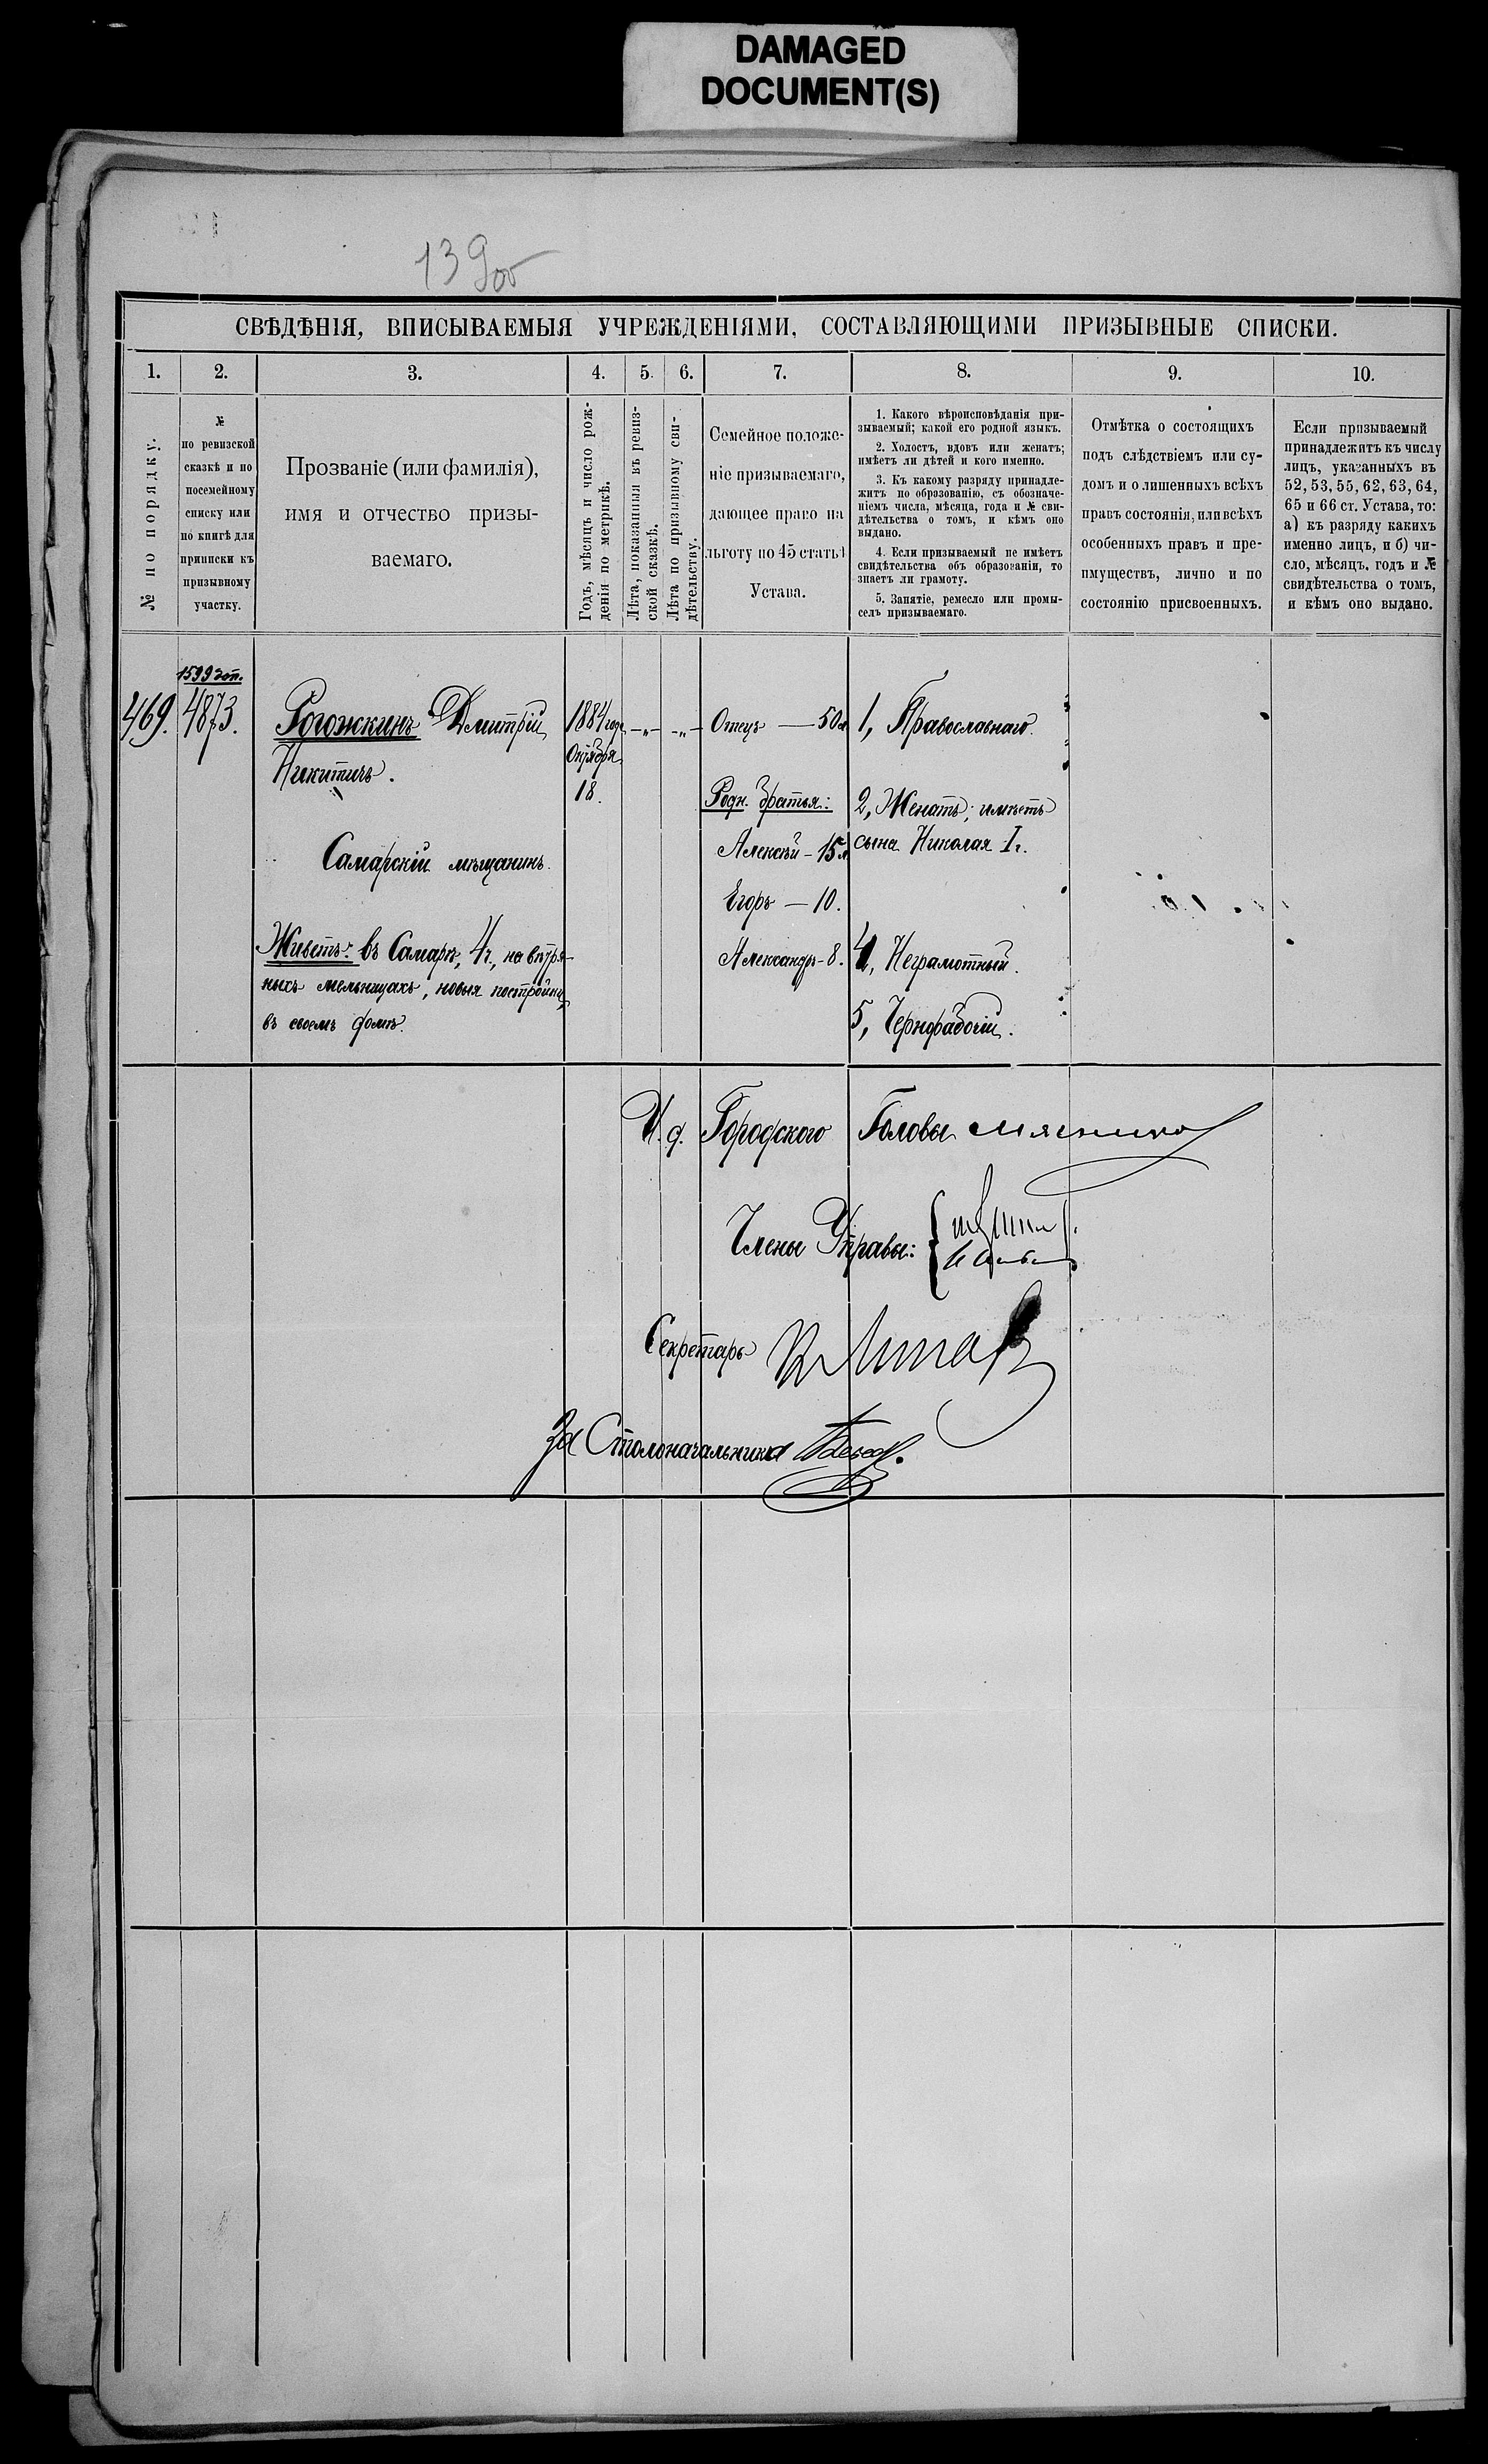 DAMAGED
DOCUMENT(S)
139об
СВѢДѢНІЯ, ВПИСЫВАЕМЫЯ УЧРЕЖДЕНІЯМИ, СОСТАВЛЯЮЩИМИ ПРИЗЫВНЫЕ СПИСКИ.
1. 2. 3. 4. 5. 6. 7. 8. 9. 10.
№ по порядку.
№
по ревизской
сказкѣ и по
посемейному
списку или
по книгѣ для
приписки къ
призывному
участку.
Прозваніе (или фамилія),
имя и отчество призы-
ваемаго.
Годъ, мѣсяцъ и число рож-
денія по метрикѣ.
Лѣта, показанныя въ ревиз-
ской сказкѣ.
Лѣта по призывному сви-
дѣтельству.
Семейное положе-
ніе призываемаго,
дающее право на
льготу по 45 статьѣ
Устава.
1. Какого вѣроисповѣданія при-
зываемый; какой его родной языкъ.
2. Холостъ, вдовъ или женатъ;
имѣетъ ли дѣтей и кого именно.
3. Къ какому разряду принадле-
житъ по образованію, съ обозначе-
ніемъ числа, мѣсяца, года и № сви-
дѣтельства о томъ, и кѣмъ оно
выдано.
4. Если призываемый не имѣетъ
свидѣтельства объ образованіи, то
знаетъ ли грамоту.
5. Занятіе, ремесло или промы-
селъ призываемаго.
Отмѣтка о состоящихъ
подъ слѣдствіемъ или су-
домъ и о лишенныхъ всѣхъ
правъ состоянія, или всѣхъ
особенныхъ правъ и пре-
имуществъ, лично и по
состоянію присвоенныхъ.
Если призываемый
принадлежитъ къ числу
лицъ, указанныхъ въ
52, 53, 55, 62, 63, 64,
65 и 66 ст. Устава, то:
а) къ разряду какихъ
именно лицъ, и б) чи-
сло, мѣсяцъ, годъ и №
свидѣтельства о томъ,
и кѣмъ оно выдано.
469.
1599 зап.
4873.
Рогожкинъ Дмитрій
Никитичъ.
Самарскій мѣщанинъ.
Живетъ: въ Самарѣ, 4ч., на вѣтря-
ныхъ мельницахъ, новыя постройки,
въ своемъ домѣ.
1884 года
Октября
18.
-"- -"-
Отецъ — 50 л
Родн. братья:
Алексѣй - 15 л
Егоръ — 10.
Александръ - 8.
1, Православнаго.
2, Женатъ; имѣетъ
сына Николая 1 г.
4, Неграмотный.
5, Чернорабочій.
И. д. Городского Головы Мясников
Члены Управы:
Секретарь
За Столоначальника